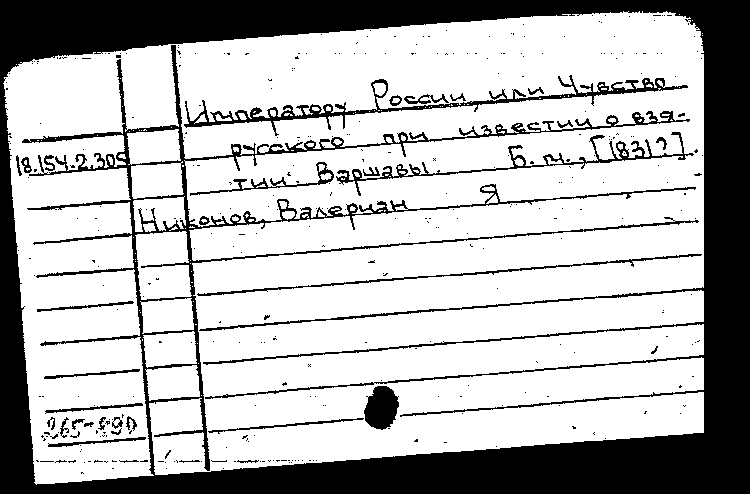 Императору России, или Чувство
18.154.2.305 русского при известии о взя-
тии Варшавы. Б.м., [1831?].
Никонов, Валериан Я
265-890